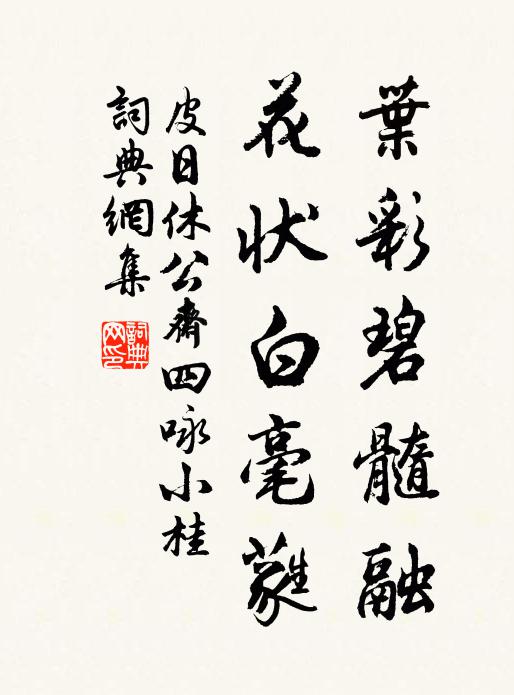 葉彩碧髓融
花狀白毫蕤
皮日休公齋四咏小桂
詞典網集
詞典網印